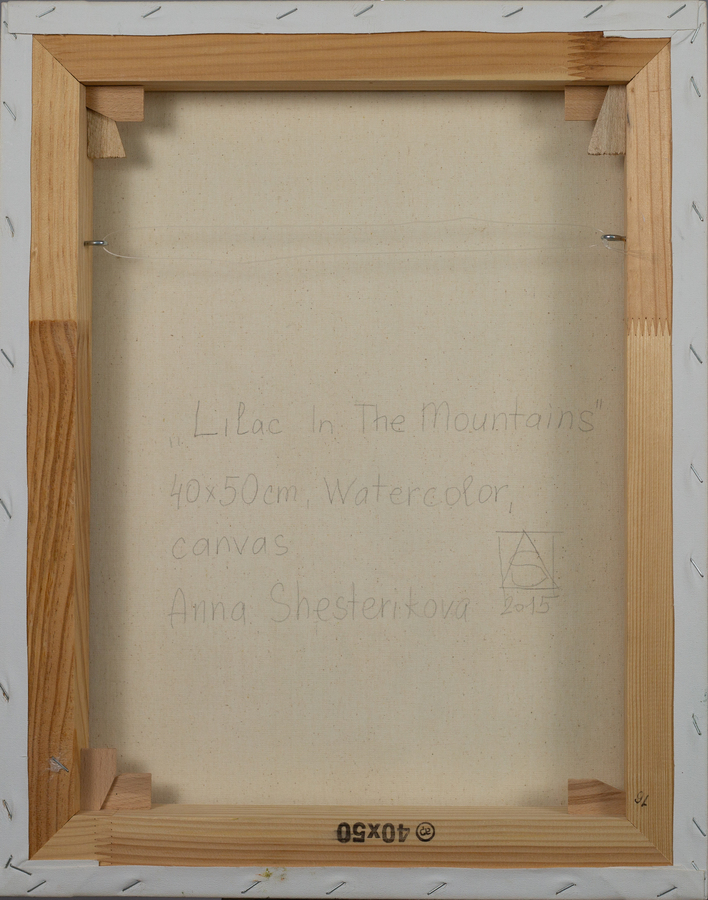 „Lilac In The Mountains"
40x50cm, Watercolor,
canvas
Anna Shesterikova
2015
40x50
16